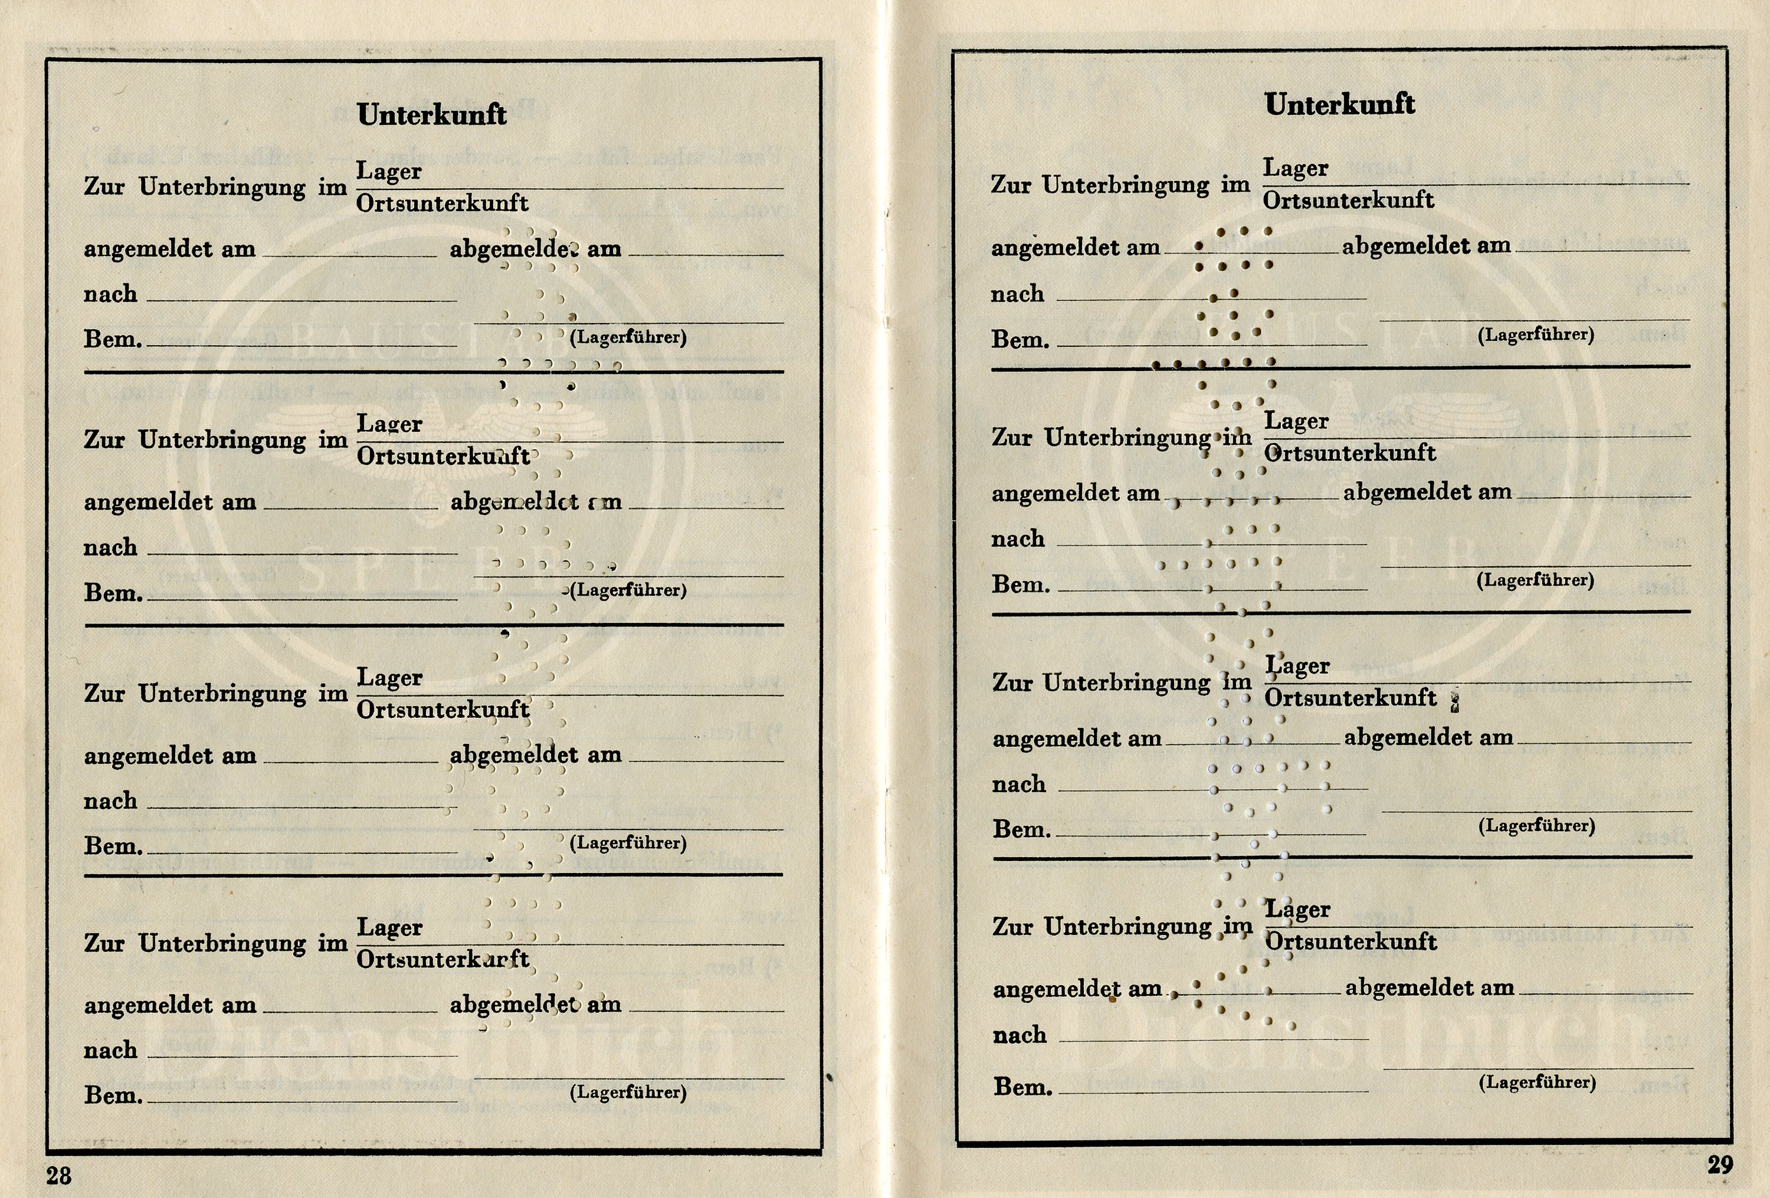 Unterkunft
Zur Unterbringung im Lager
Ortsunterkunft
angemeldet am abgemeldet am
nach
Bem. (Lagerführer)
Zur Unterbringung im Lager
Ortsunterkunft
angemeldet am abgemeldet am
nach
Bem. (Lagerführer)
Zur Unterbringung im Lager
Ortsunterkunft
angemeldet am abgemeldet am
nach
Bem. (Lagerführer)
Zur Unterbringung im Lager
Ortsunterkunft
angemeldet am abgemeldet am
nach
Bem. (Lagerführer)
BAUSTAB
SPEER
Dienstbuch
28
Unterkunft
Zur Unterbringung im Lager
Ortsunterkunft
angemeldet am abgemeldet am
nach
Bem. (Lagerführer)
Zur Unterbringung im Lager
Ortsunterkunft
angemeldet am abgemeldet am
nach
Bem. (Lagerführer)
Zur Unterbringung im Lager
Ortsunterkunft
angemeldet am abgemeldet am
nach
Bem. (Lagerführer)
Zur Unterbringung im Lager
Ortsunterkunft
angemeldet am abgemeldet am
nach
Bem. (Lagerführer)
BAUSTAB
SPEER
Dienstbuch
29